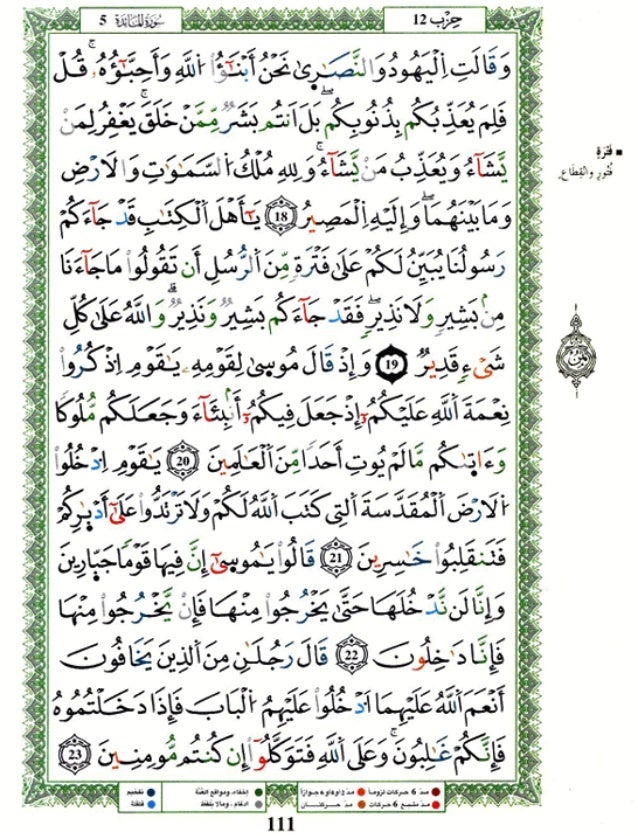 حِزْب 12
سُورَةُ المَائِدَة 5
وَقَالَتِ اِ۬لْيَهُودُ وَالنَّصَٰر۪ىٰ نَحْنُ أَبْنَٰٓؤُاْ اُ۬للَّهِ وَأَحِبَّٰٓؤُهُۥۖ قُلْ
فَلِمَ يُعَذِّبُكُم بِذُنُوبِكُمۖ بَلَ اَنتُم بَشَرٞ مِّمَّنْ خَلَقَۖ يَغْفِرُ لِمَنْ
يَّشَآءُ وَيُعَذِّبُ مَنْ يَّشَآءُۖ وَلِلهِ مُلْكُ اُ۬لسَّمَٰوَٰتِ وَالَارْضِ
وَمَا بَيْنَهُمَاۖ وَإِلَيْهِ اِ۬لْمَصِيرُ 18 يَٰٓأَهْلَ اَ۬لْكِتَٰبِ قَدْ جَآءَكُمْ
رَسُولُنَا يُبَيِّنُ لَكُمْ عَلَىٰ فَتْرَةٖ مِّنَ اَ۬لرُّسُلِ أَن تَقُولُواْ مَا جَآءَنَا
مِنۢ بَشِيرٖ وَلَا نَذِيرٖۖ فَقَدْ جَآءَكُم بَشِيرٞ وَنَذِيرٞۖ وَاللَّهُ عَلَىٰ كُلِّ
شَےْءٖ قَدِيرٞ 19 وَإِذْ قَالَ مُوس۪ىٰ لِقَوْمِهِۦ يَٰقَوْمِ اِ۟ذْكُرُواْ
نِعْمَةَ اَ۬للَّهِ عَلَيْكُمُۥٓ إِذْ جَعَلَ فِيكُمُۥٓ أَنۢبِـَٔآءَ وَجَعَلَكُم مُّلُوكاٗ
وَءَات۪ىٰكُم مَّا لَمْ يُوتِ أَحَداٗ مِّنَ اَ۬لْعَٰلَمِينَ 20 يَٰقَوْمِ اِ۟دْخُلُواْ
اُ۬لَارْضَ اَ۬لْمُقَدَّسَةَ اَ۬لتِے كَتَبَ اَ۬للَّهُ لَكُمْ وَلَا تَرْتَدُّواْ عَلَىٰٓ أَدْبٰ۪رِكُمْ
فَتَنقَلِبُواْ خَٰسِرِينَ 21 قَالُواْ يَٰمُوس۪ىٰٓ إِنَّ فِيهَا قَوْماٗ جَبّ۪ارِينَ
وَإِنَّا لَن نَّدْخُلَهَا حَتَّىٰ يَخْرُجُواْ مِنْهَا فَإِنْ يَّخْرُجُواْ مِنْهَا
فَإِنَّا دَٰخِلُونَ 22 قَالَ رَجُلَٰنِ مِنَ اَ۬لذِينَ يَخَافُونَ
أَنْعَمَ اَ۬للَّهُ عَلَيْهِمَا اَ۟دْخُلُواْ عَلَيْهِمُ اُ۬لْبَابَ فَإِذَا دَخَلْتُمُوهُ
فَإِنَّكُمْ غَٰلِبُونَۖ وَعَلَى اَ۬للَّهِ فَتَوَكَّلُوٓاْ إِن كُنتُم مُّومِنِينَ 23
فَتْرَةٍ
فُتُورٍ وَانْقِطَاع
مدّ 6 حركات لزوماً
مدّ 2 أو 4 أو 6 جوازاً
إخفاء، ومواقع الغُنَّة
تفخيم
مدّ مشبع 6 حركات
مدّ حركتـان
ادغام، ومالا يُلفظ
قلقلة
111